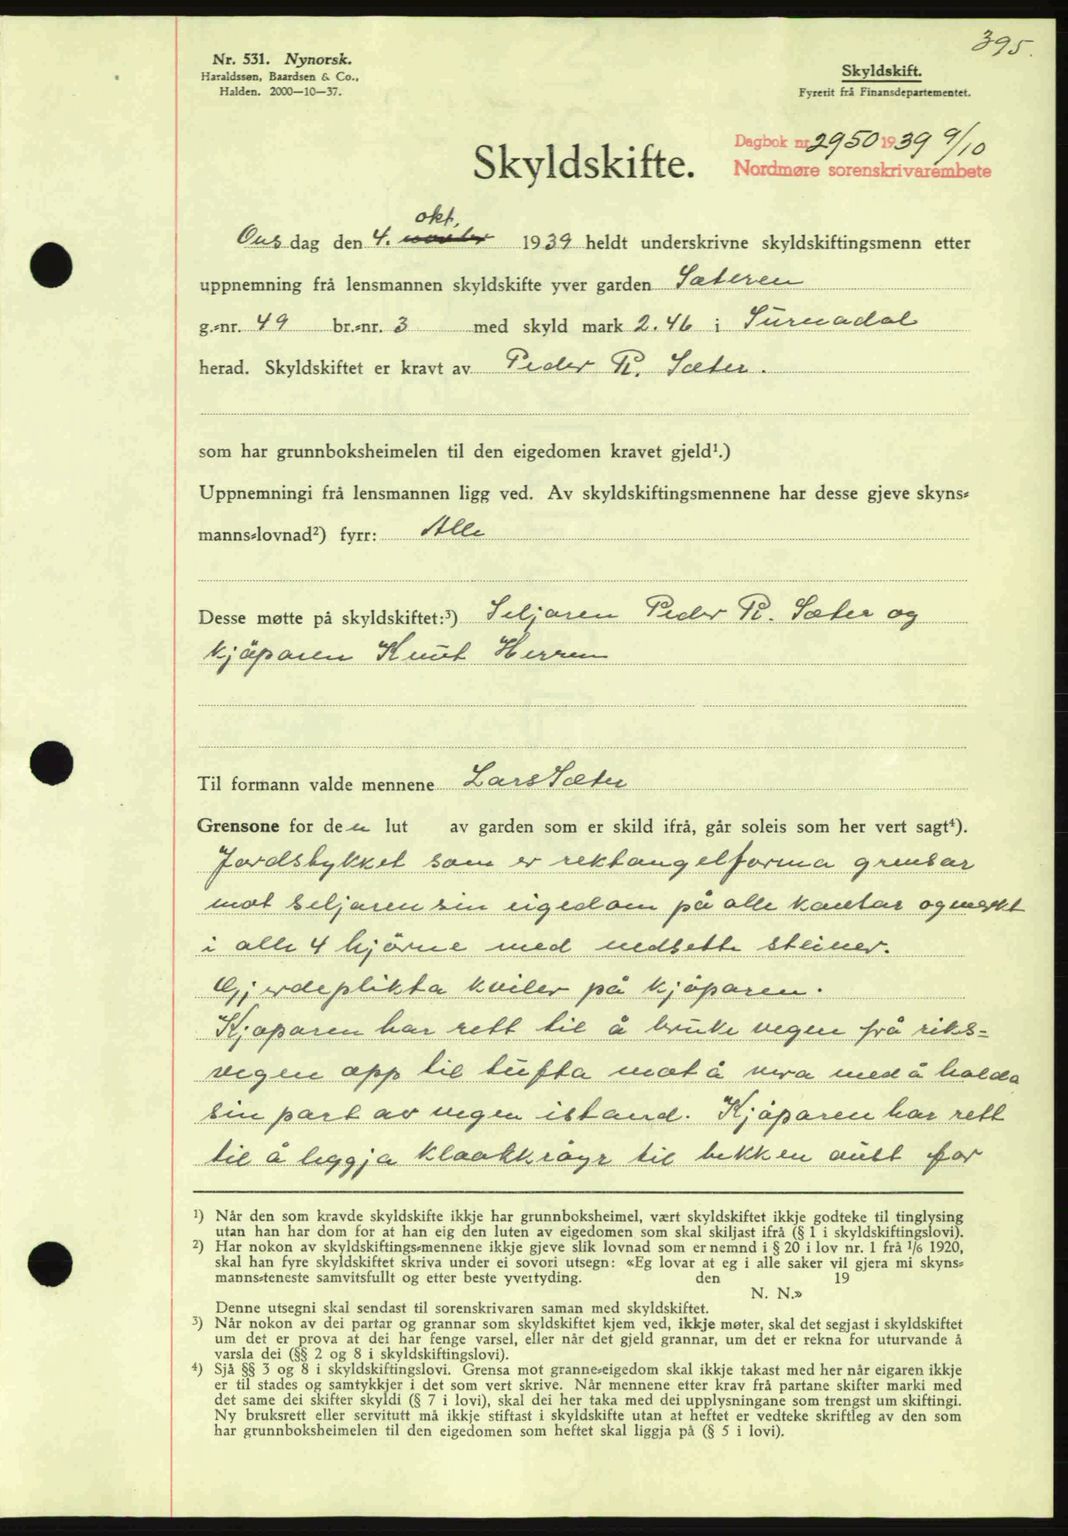 395.
Nr. 531. Nynorsk.
Haraldssen, Baardsen & Co.,
Halden. 2000—10—37.
Skyldskift.
Fyrerit frå Finansdepartementet.
Dagbok nr. 2950 1939 9/10
Nordmøre sorenskrivarembete
Skyldskifte.
okt.
Ons dag den 4. 1939 heldt underskrivne skyldskiftingsmenn etter
uppnemning frå lensmannen skyldskifte yver garden Sæteren
g.-nr. 49 br.-nr. 3 med skyld mark 2.46 i Surnadal
herad. Skyldskiftet er kravt av Peder R. Sæter.
som har grunnboksheimelen til den eigedomen kravet gjeld¹.)
Uppnemningi frå lensmannen ligg ved. Av skyldskiftingsmennene har desse gjeve skyns-
manns-lovnad²) fyrr: Alle
Desse møtte på skyldskiftet:³) Seljaren Peder R. Sæter og
kjöparen Knut Herren
Til formann valde mennene Lars Sæter
Grensone for den lut av garden som er skild ifrå, går soleis som her vert sagt⁴).
Jordstykket som er rektangelforma grensar
mot seljaren sin eigedom på alle kantar og merkt
i alle 4 hjörne med nedsette steiner.
Gjerdeplikta kviler på kjöparen.
Kjöparen har rett til å bruke vegen frå riks-
vegen opp til tufta mot å vera med å halda
sin part av vegen istand. Kjöparen har rett
til å leggja kloakkröyr til bekken aust for
¹) Når den som kravde skyldskifte ikkje har grunnboksheimel, vært skyldskiftet ikkje godteke til tinglysing
utan han har dom for at han eig den luten av eigedomen som skal skiljast ifrå (§ 1 i skyldskiftingslovi).
²) Har nokon av skyldskiftings-mennene ikkje gjeve slik lovnad som er nemnd i § 20 i lov nr. 1 frå 1/6 1920,
skal han fyre skyldskiftet skriva under ei sovori utsegn: «Eg lovar at eg i alle saker vil gjera mi skyns-
manns-teneste samvitsfullt og etter beste yvertyding. den 19
N. N.»
Denne utsegni skal sendast til sorenskrivaren saman med skyldskiftet.
³) Når nokon av dei partar og grannar som skyldskiftet kjem ved, ikkje møter, skal det segjast i skyldskiftet
um det er prova at dei har fenge varsel, eller når det gjeld grannar, um det er rekna for uturvande å
varsla dei (§§ 2 og 8 i skyldskiftingslovi).
⁴) Sjå §§ 3 og 8 i skyldskiftingslovi. Grensa mot granne-eigedom skal ikkje takast med her når eigaren ikkje
er til stades og samtykkjer i det som vert skrive. Når mennene etter krav frå partane skifter marki med
det same dei skifter skyldi (§ 7 i lovi), skal dei her taka med dei upplysningane som trengst um skiftingi.
Ny bruksrett eller servitutt må ikkje stiftast i skyldskifte utan at heftet er vedteke skriftleg av den som
har grunnboksheimelen til den eigedomen som heftet skal liggja på (§ 5 i lovi).